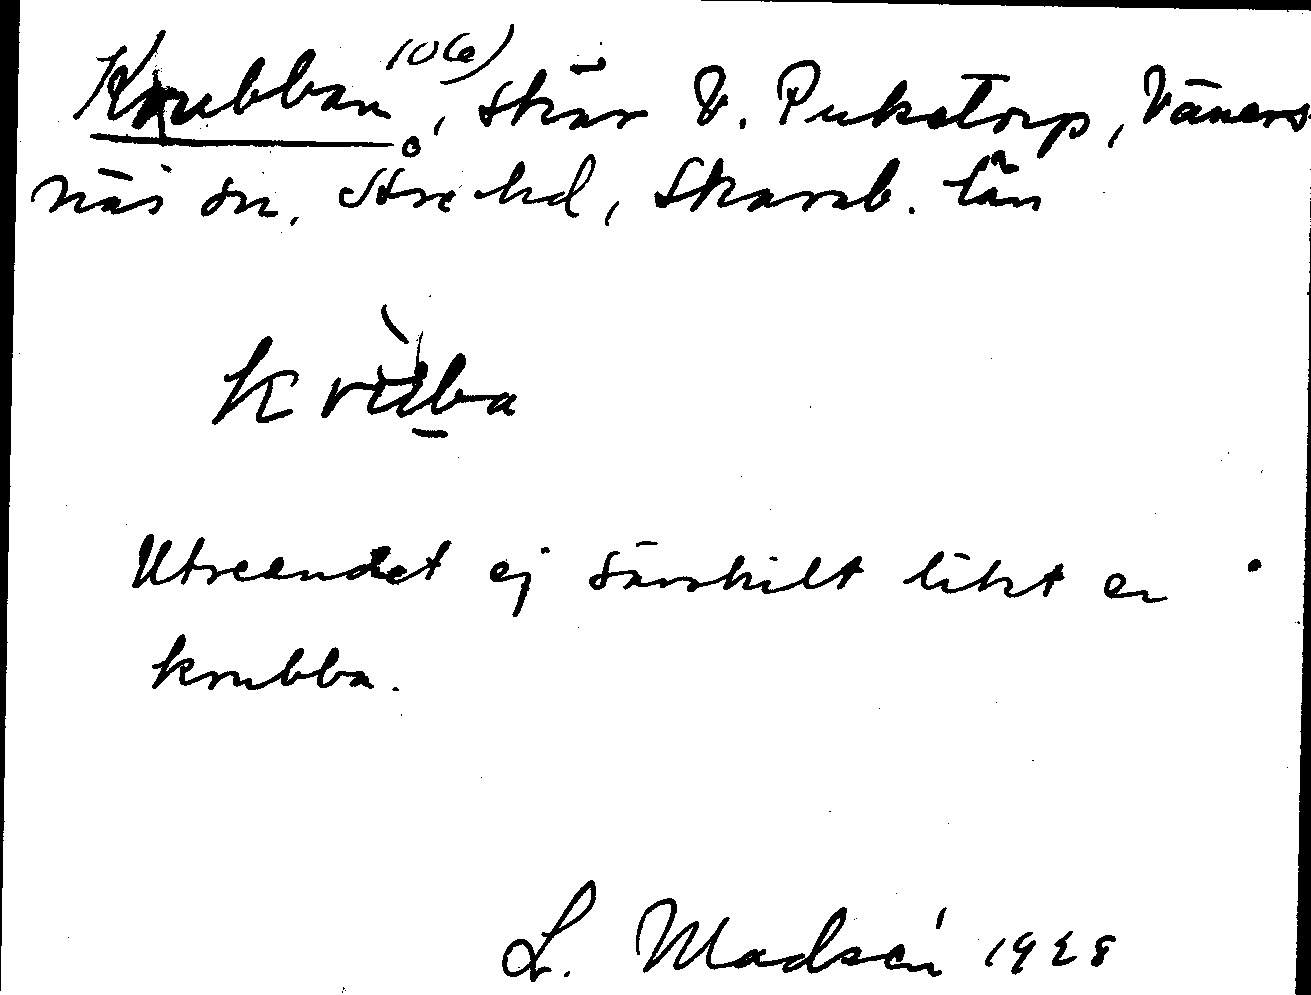 Krubban 106), skär V. Pukatorp, Väners
näs sn. Åse hd, Skarab. län
krùba
Utseendet ej särskilt likt en
krubba.
L. Madsén 1928